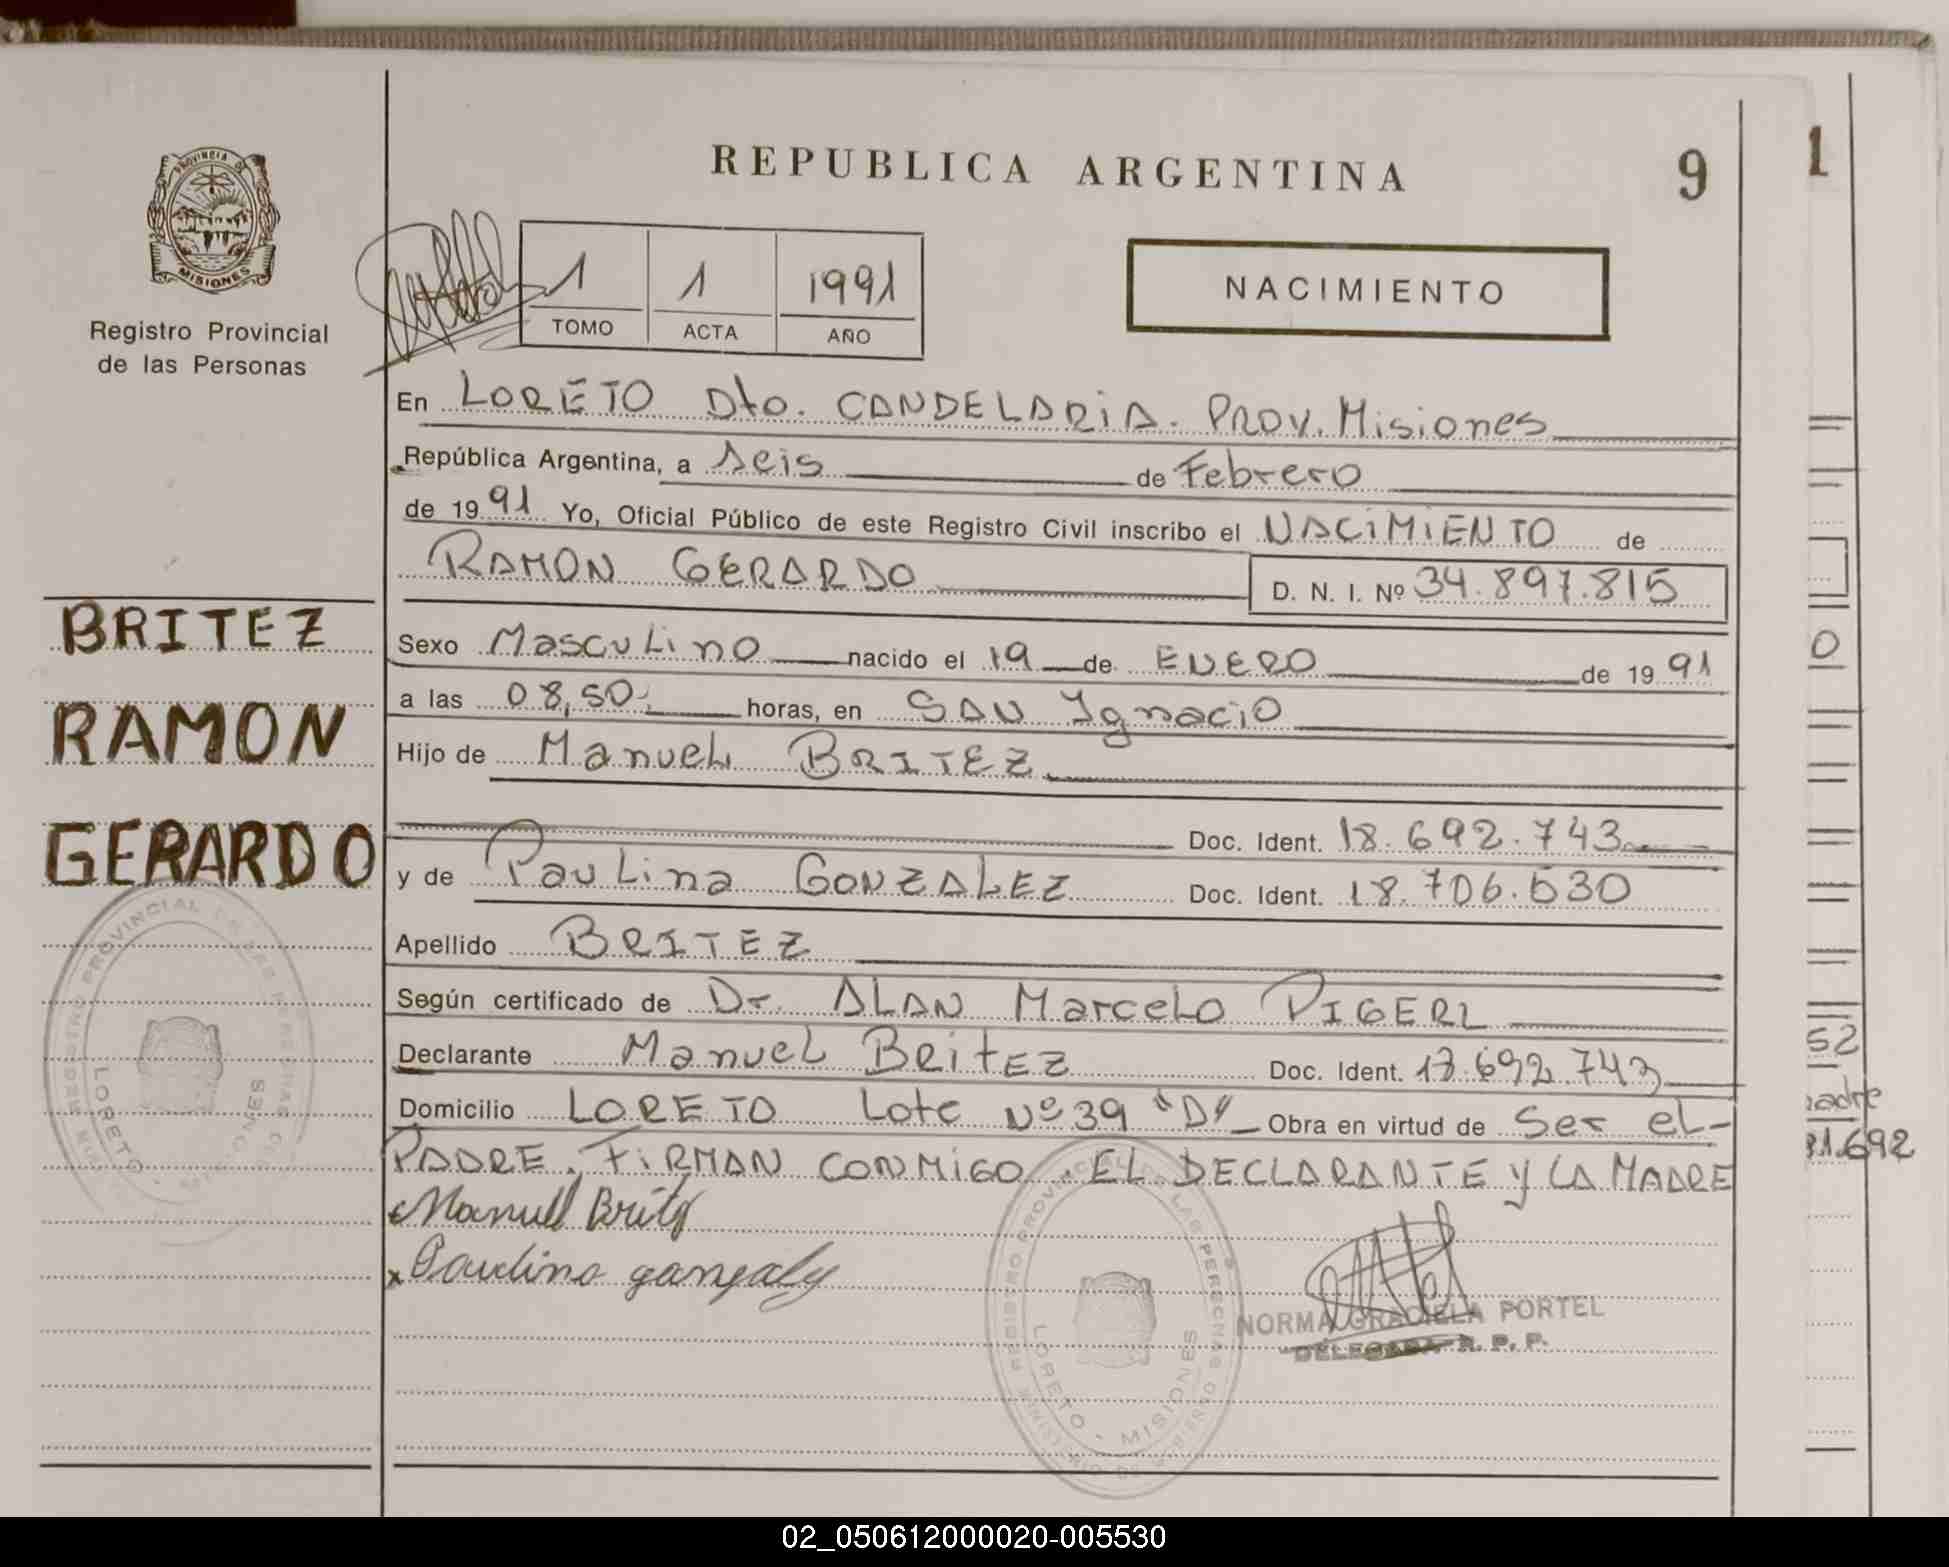 REPUBLICA ARGENTINA
9
1
PROVINCIA DE
MISIONES
Registro Provincial
de las Personas
1 1 1991
TOMO ACTA AÑO
NACIMIENTO
En LORETO Dto. CANDELARIA. PROV. Misiones
República Argentina, a seis de Febrero
de 1991 Yo, Oficial Público de este Registro Civil inscribo el NACIMIENTO de
RAMON GERARDO D. N. I. Nº 34.897.815
BRITEZ
RAMON
GERARDO
Sexo Masculino nacido el 19 de ENERO de 1991
a las 08,50. horas, en SAN Ignacio
Hijo de Manuel BRITEZ
Doc. Ident. 18.692.743
y de Paulina GONZALEZ Doc. Ident. 18.706.530
Apellido BRITEZ
Según certificado de Dr. ALAN Marcelo
Declarante Manuel BRITEZ Doc. Ident. 692.743
Domicilio LORETO Lote Nº 39 "D" Obra en virtud de Ser el-
PADRE. FIRMAN CONMIGO EL DECLARANTE y LA MADRE
Manuel Britez
x Paulina
NORMA GRACIELA PORTEL
DELEGADA R. P. P.
REGISTRO PROVINCIAL DE LAS PERSONAS
LORETO - MISIONES
REGISTRO PROVINCIAL DE LAS PERSONAS
LORETO - MISIONES
0
52
adre
31.692
02_050612000020-005530